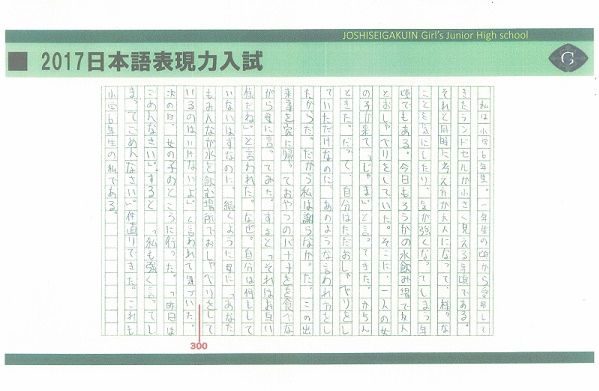 JOSHISEIGAKUIN Girl's Junior High school
2017日本語表現力入試
G
私は小学6年生。一年生の頃から愛用して
きたランドセルが小さく見える年頃である。
それと同時に考え方が大人になって、様々な
ことを気にしたり、気が強くなってしまう年
頃でもある。今日もろうかの水飲み場で友人
とおしゃべりをしていた。そこに、一人の女
の子が来て「じゃま」と言ってきた。かちん
ときた。だって、自分はただおしゃべりをし
ていただけなのに、あのような言われ方をし
たからだ。だから私は謝らなかった。この出
来事を家に帰っておやつのバナナを食べな
がら母に言ってみた。すると「それはお互い
様だね」と言われた。なぜ。自分は何もして
いないはずなのに。続くように母に「あなた
もみんなが水を飲む場所でおしゃべりをして
いるのはいけないよ」と言われて気づいた。
次の日、女の子のところに行った。「昨日は
ごめんなさい。」すると「私も強く言ってし
まってごめんなさい」仲直りできた。これも
小学6年生の私である。
300